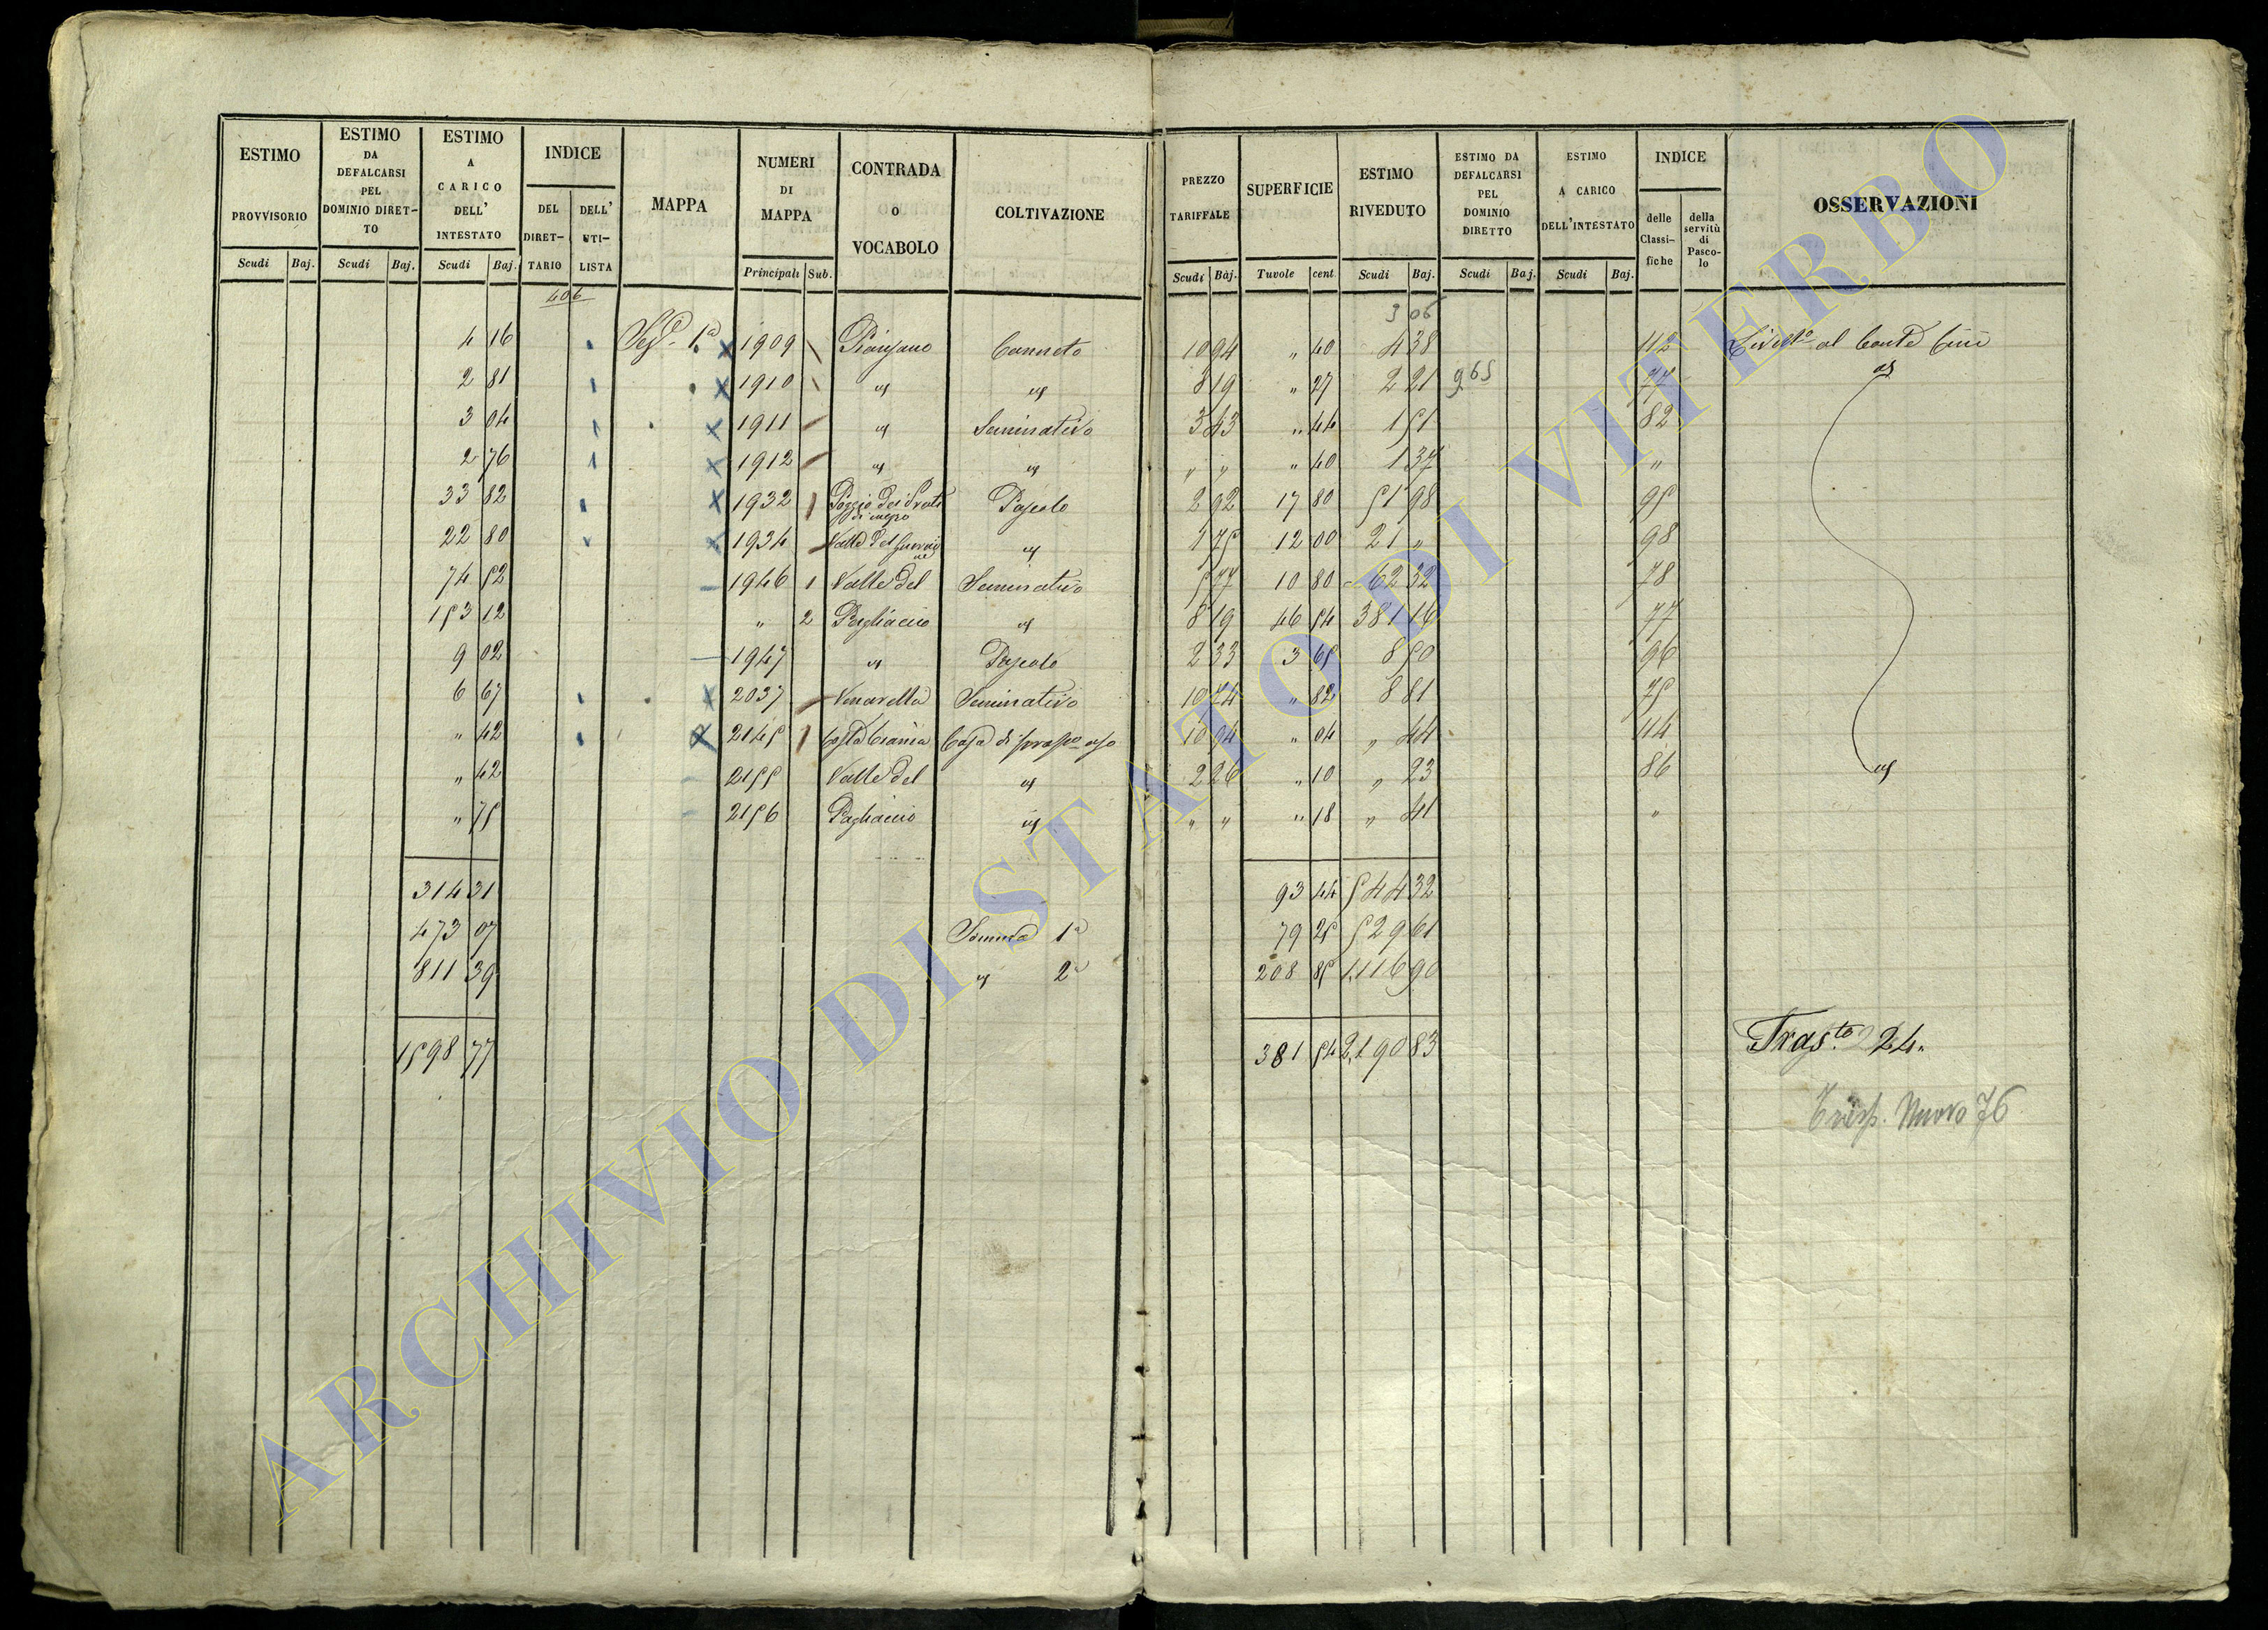 ESTIMO PROVVISORIO | ESTIMO DA DEFALCARSI PEL DOMINIO DIRETTO | ESTIMO A CARICO DELL' INTESTATO | INDICE | MAPPA | NUMERI DI MAPPA | CONTRADA O VOCABOLO | COLTIVAZIONE | PREZZO TARIFFALE | SUPERFICIE | ESTIMO RIVEDUTO | ESTIMO DA DEFALCARSI PEL DOMINIO DIRETTO | ESTIMO A CARICO DELL'INTESTATO | INDICE | OSSERVAZIONI
DEL DIRETTARIO | DELL' UTILISTA | delle Classifiche | della servitù di Pascolo
Scudi | Baj. | Scudi | Baj. | Scudi | Baj. | Principali | Sub. | Scudi | Baj. | Tuvole | cent. | Scudi | Baj. | Scudi | Baj. | Scudi | Baj.
406 | 3 06
4 16 | 1ª | 1909 | Pianzano | Canneto | 10 94 | " 40 | 4 38 | 112 | al Conte
2 81 | 1910 | id | id | 8 19 | " 27 | 2 21 | 9 65 | 77 | id
3 04 | 1911 | id | Seminativo | 3 43 | " 44 | 1 51 | 82
2 76 | 1912 | id | id | " " | " 40 | 1 37 | "
33 82 | 1932 | Poggio dei | Pascolo | 2 92 | 17 80 | 51 98 | 95
22 80 | 1934 | Valle del | id | 1 75 | 12 00 | 21 " | 98
74 52 | 1946 | 1 | Valle del | Seminativo | 5 77 | 10 80 | 62 32 | 78
153 12 | " | 2 | Pagliaccio | id | 8 19 | 46 54 | 381 16 | 77
9 02 | 1947 | id | Pascolo | 2 33 | 3 65 | 8 50 | 96
6 67 | 2037 | Venarella | Seminativo | 10 74 | " 82 | 8 81 | 75
" 42 | 2145 | Costa | Casa di uso | 10 94 | " 04 | " 44 | 114
" 42 | 2155 | Valle del | id | 2 26 | " 10 | " 23 | 86 | id
" 75 | 2156 | Pagliaccio | id | " " | " 18 | " 41 | "
314 31 | 93 44 | 544 32
473 07 | Somma 1ª | 79 25 | 529 61
811 39 | id 2ª | 208 85 | 1,116 90
1598 77 | 381 54 | 2,190 83
Tras.to 24.
Nuovo 76
ARCHIVIO DI STATO DI VITERBO